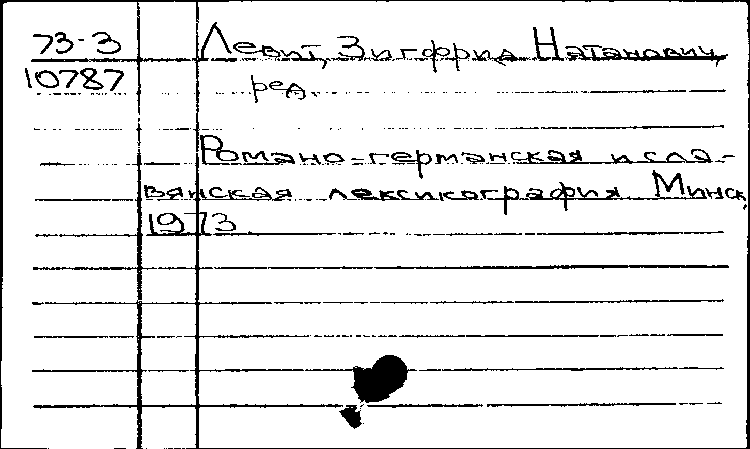 73-3 Левит, Зигфрид Натанович,
10787 ред.
Романо-германская и сла-
вянская лексикография Минск,
1973.